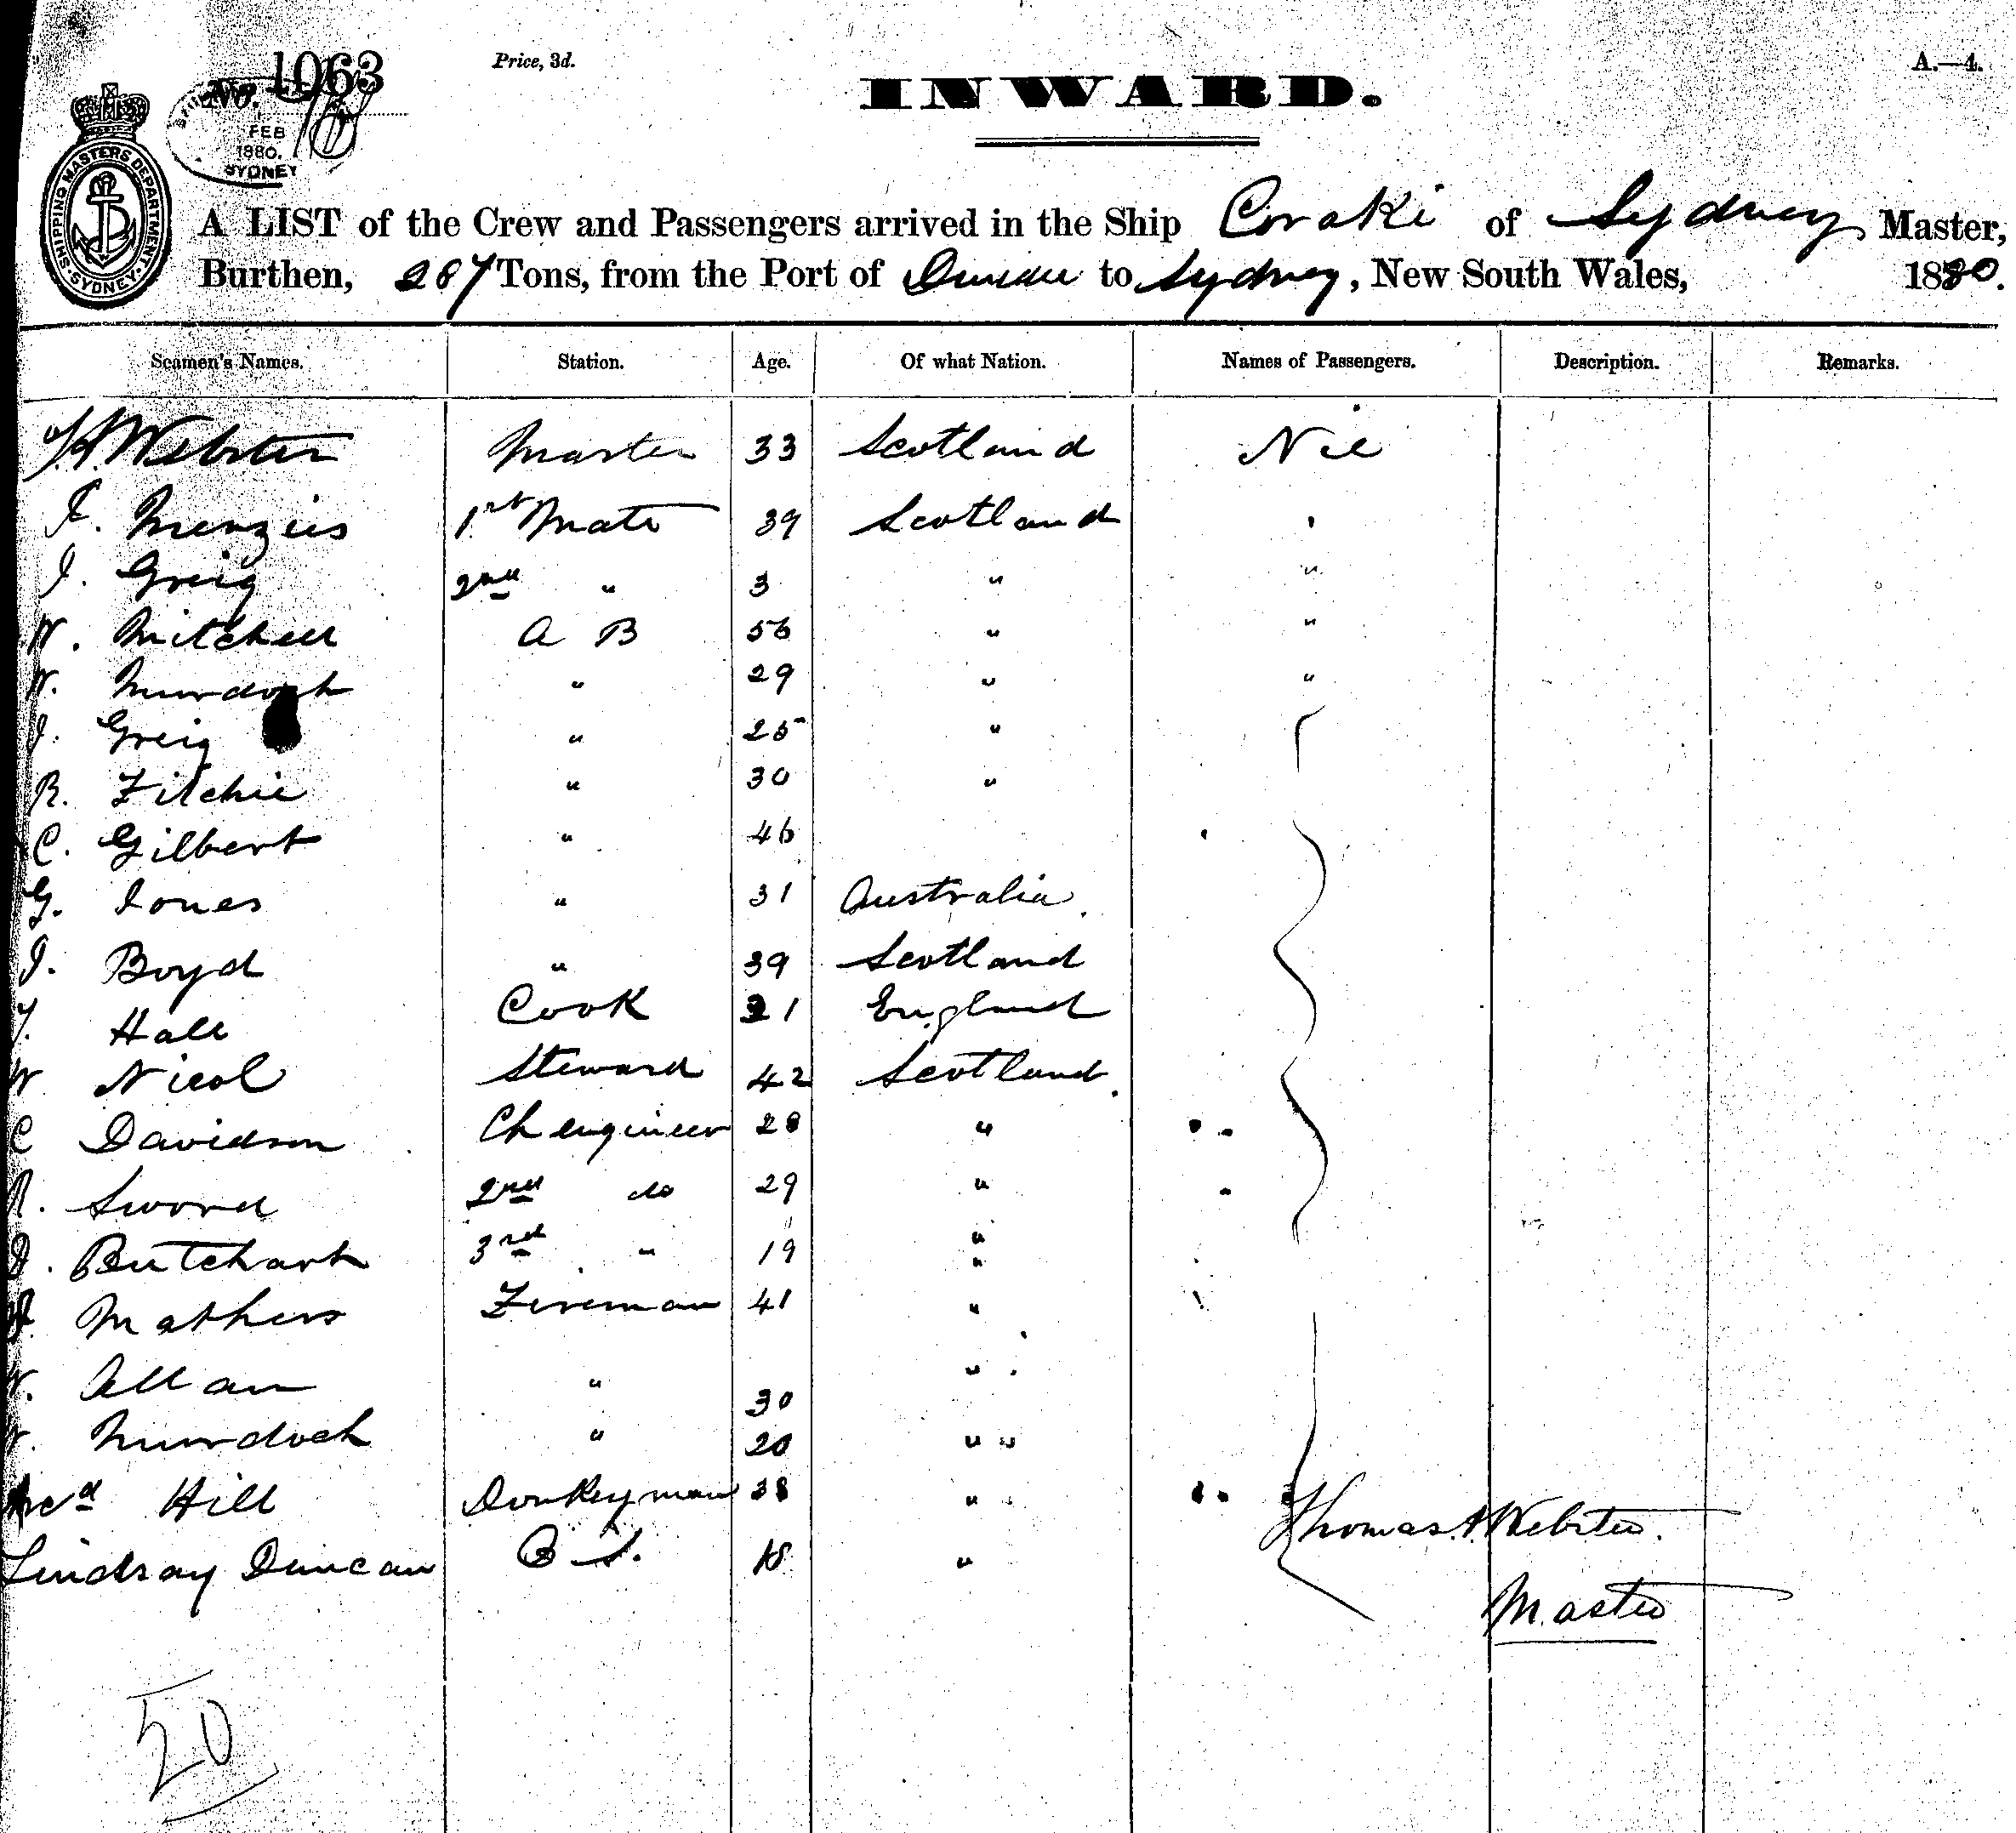 No. 1063
Price, 3d.
A.—4.
INWARD.
FEB
1880.
SYDNEY
SHIPPING MASTERS DEPARTMENT
SYDNEY
A LIST of the Crew and Passengers arrived in the Ship Coraki of Sydney Master,
Burthen, 287 Tons, from the Port of Dundee to Sydney, New South Wales, 1880.
Seamen's Names. Station. Age. Of what Nation. Names of Passengers. Description. Remarks.
Webster Master 33 Scotland Nil
Menzies 1st Mate 39 Scotland
J. Greig 2nd " 3 " "
W. Mitchell A B 56 " "
W. Murdoch " 29 " "
J. Greig " 25 "
R. Fitchie " 30 "
C. Gilbert " 46
G. Jones " 31 Australia.
J. Boyd " 39 Scotland
T. Hall Cook 31 England
W Nicol Steward 42 Scotland.
C Davidson Ch engineer 28 "
R. Sword 2nd do 29 "
D. Butchart 3rd " 19 "
Mathers Fireman 41 "
W. Allan " 30 "
W. Murdoch " 20 "
Hill Donkeyman 38 "
Lindsay Duncan O S. 18 "
Thomas A Webster.
Master
20